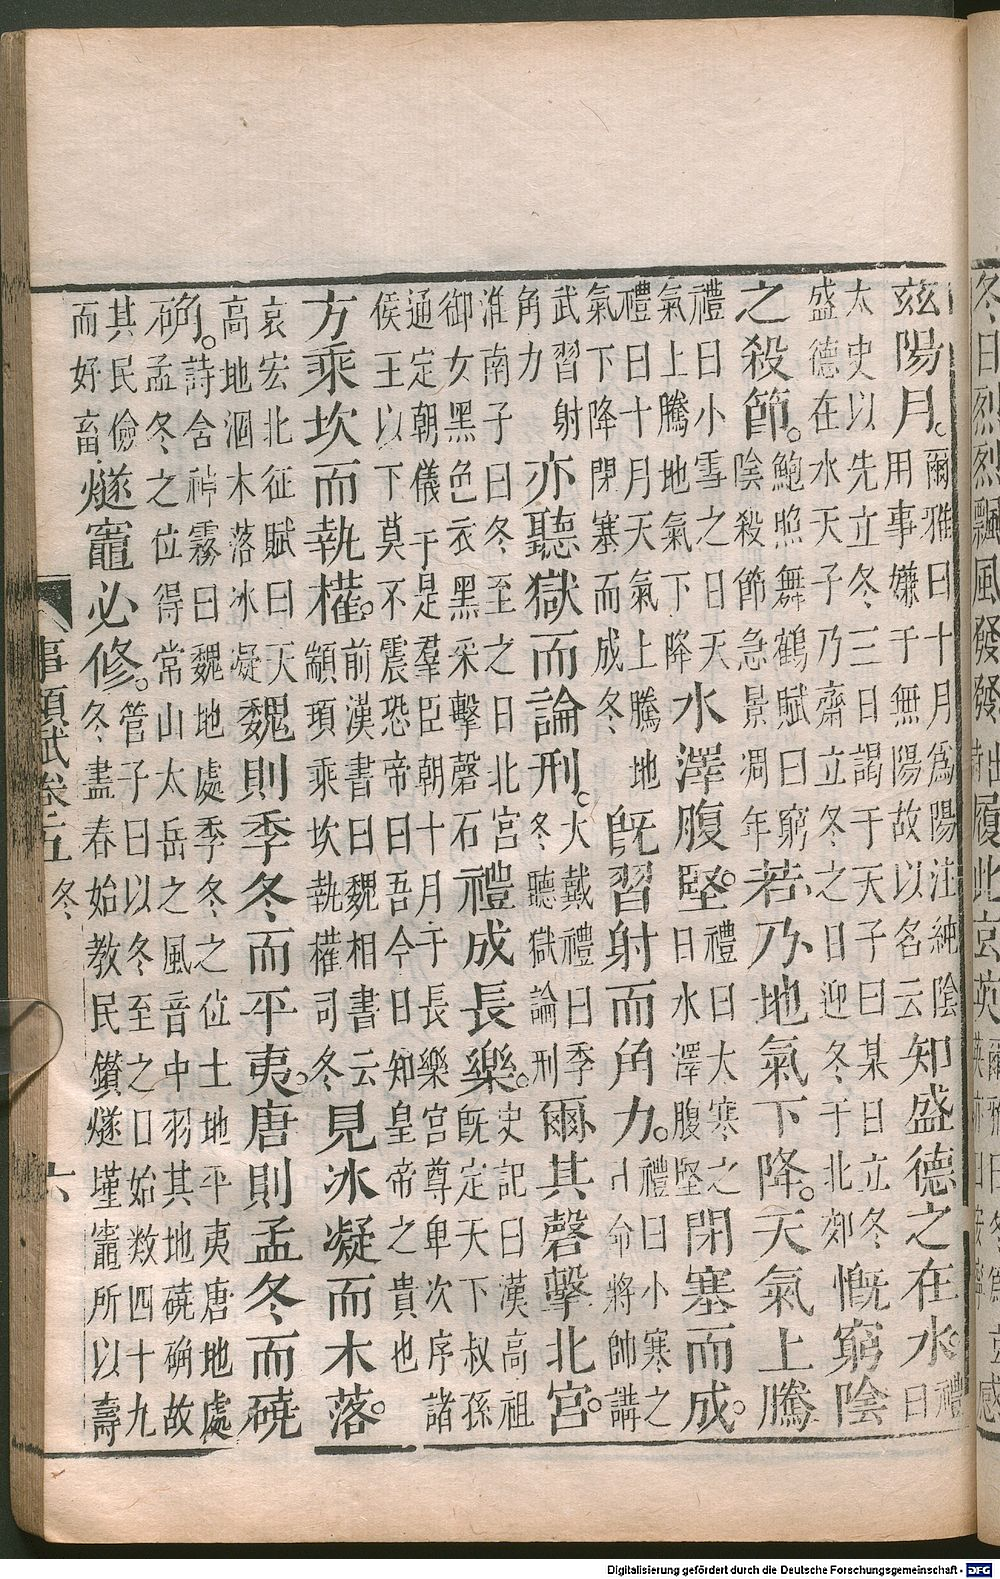 茲陽月。爾雅曰十月為陽注純陰
用事嫌于無陽故以名云
知盛德之在水。禮
曰
太史以先立冬三日謁于天子曰某日立冬
盛德在水天子乃齋立冬之日迎冬于北郊
慨窮陰
之殺節。鮑照舞鶴賦曰窮
陰殺節急景凋年
若乃地氣下降。天氣上騰
禮曰小雪之日天
氣上騰地氣下降
水澤腹堅。禮曰大寒之
日水澤腹堅
閉塞而成。
禮曰十月天氣上騰地
氣下降閉塞而成冬
既習射而角力。禮曰小寒之
日命將帥講
武習射
角力
亦聽獄而論刑。大戴禮曰季
冬聽獄論刑
爾其磬擊北宮。
淮南子曰冬至之日北宮
御女黑色衣黑采擊磬石
禮成長樂。史記曰漢高祖
既定天下叔孫
通定朝儀于是羣臣朝十月于長樂宮尊卑次序諸
侯王以下莫不震恐帝曰吾今日知皇帝之貴也
方乘坎而執權。前漢書曰魏相書云
顓頊乘坎執權司冬
見冰凝而木落。
袁宏北征賦曰天
高地涸木落冰凝
魏則季冬而平夷。唐則孟冬而磽
确。詩含神霧曰魏地處季冬之位土地平夷唐地處
孟冬之位得常山太岳之風音中羽其地磽确故
其民儉
而好畜
燧竈必修。管子曰以冬至之日始數四十九
冬盡春始教民鑽燧墐竈所以壽
事類賦卷之五 冬 六
Digitalisierung gefördert durch die Deutsche Forschungsgemeinschaft - DFG